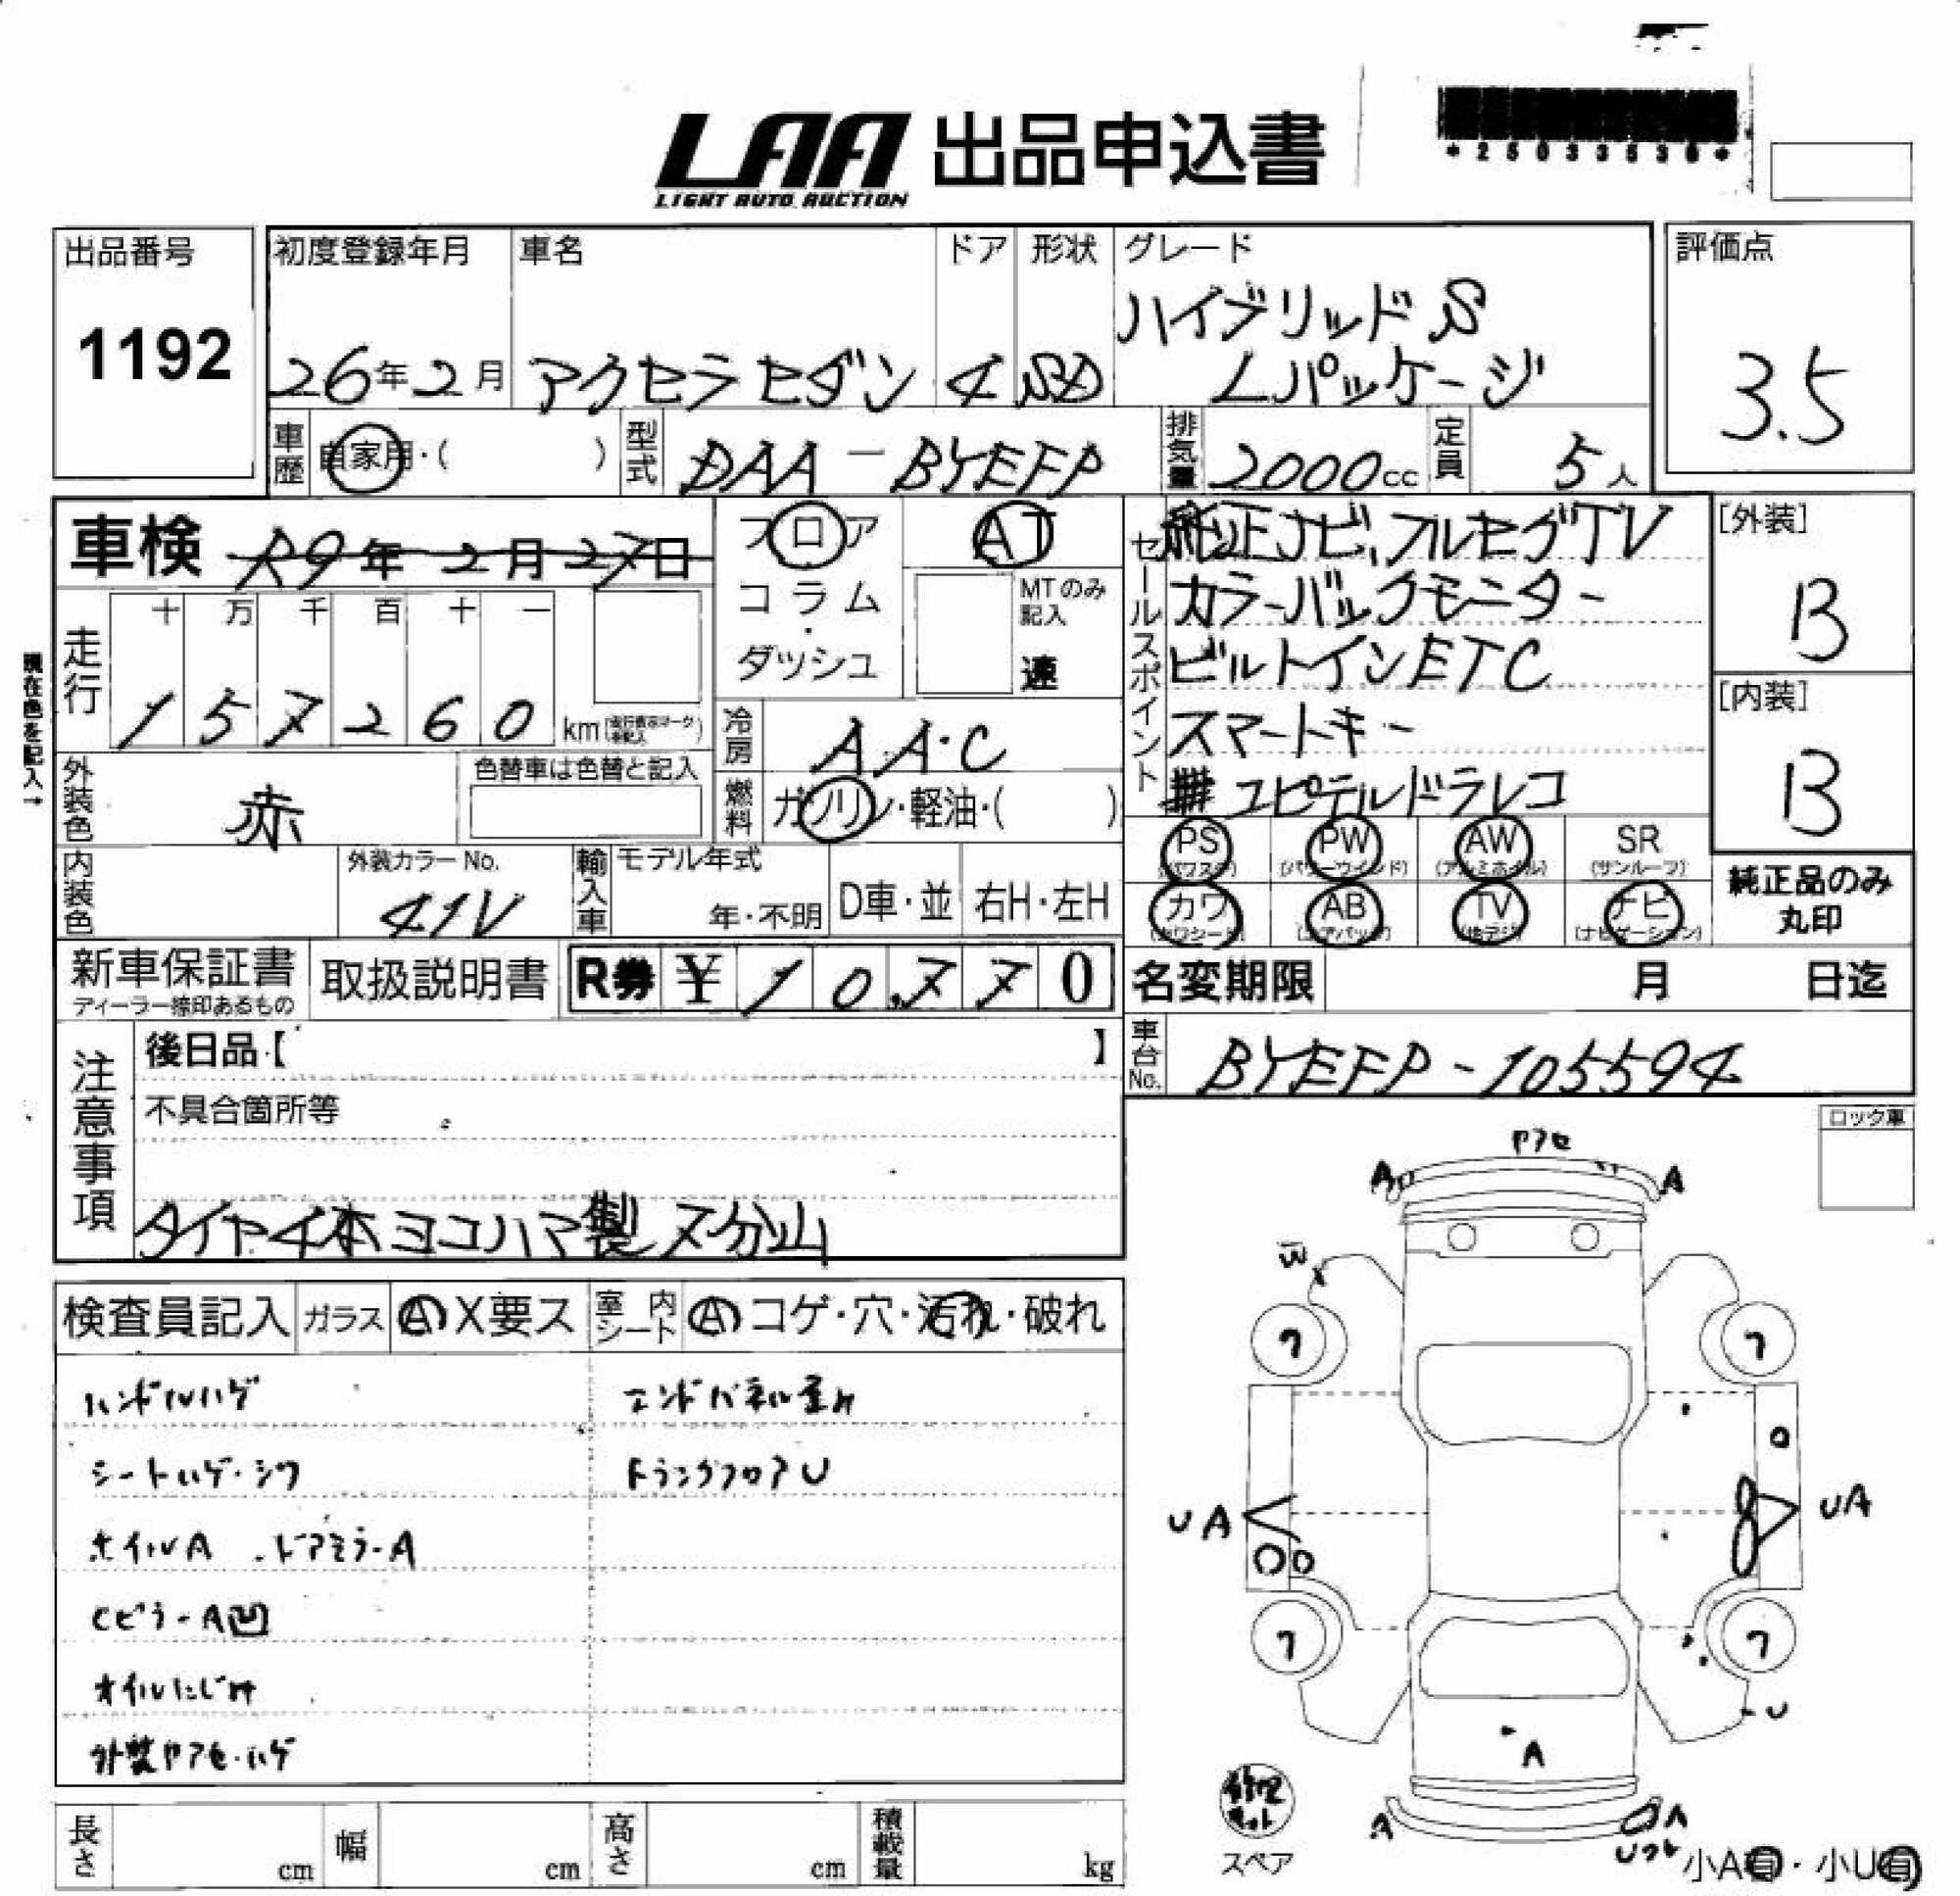 LAA 出品申込書
LIGHT AUTO AUCTION
出品番号
1192
初度登録年月
26年2月
車名
アクセラセダン
ドア
4
形状
SD
グレード
ハイブリッドS
Lパッケージ
評価点
3.5
車歴 自家用・( )
型式 DAA-BYEFP
排気量 2000cc
定員 5人
車検 R9年2月27日
フロア
コラム
・
ダッシュ
AT
MTのみ
記入
速
セールスポイント
純正ナビ、フルセグTV
カラーバックモニター
ビルトインETC
スマートキー
ユピテルドラレコ
[外装]
B
[内装]
B
現在色を記入→
走行
十 万 千 百 十 一
1 5 7 2 6 0 km
冷房 AA・C
燃料 ガソリン・軽油・( )
外装色 赤
色替車は色替と記入
内装色
外装カラーNo.
41V
輸入車
モデル年式
年・不明
D車・並
右H・左H
PS
(パワステ)
PW
(パワーウインド)
AW
(アルミホイル)
SR
(サンルーフ)
カワ
(カワシート)
AB
(エアバッグ)
TV
(地デジ)
ナビ
(ナビゲーション)
純正品のみ
丸印
新車保証書
ディーラー捺印あるもの
取扱説明書
R券 ¥ 10,770
名変期限 月 日迄
車台No. BYEFP-105594
注意事項
後日品【 】
不具合箇所等
タイヤ4本ヨコハマ製 7分山
ロック車
検査員記入
ガラス A X要ス
室内シート A コゲ・穴・汚れ・破れ
ハンドルハゲ
エンドパネル歪み
シートハゲ・シワ
トランクフロアU
ホイルA ・ドアミラーA
CピラーA凹
オイルにじみ
外装ヤアセ・ハゲ
ヤアセ
A A
W
7 7
UA UA
7 7
U
A
A A
修理キット
スペア
小A有・小U有
長さ cm
幅 cm
高さ cm
積載量 kg